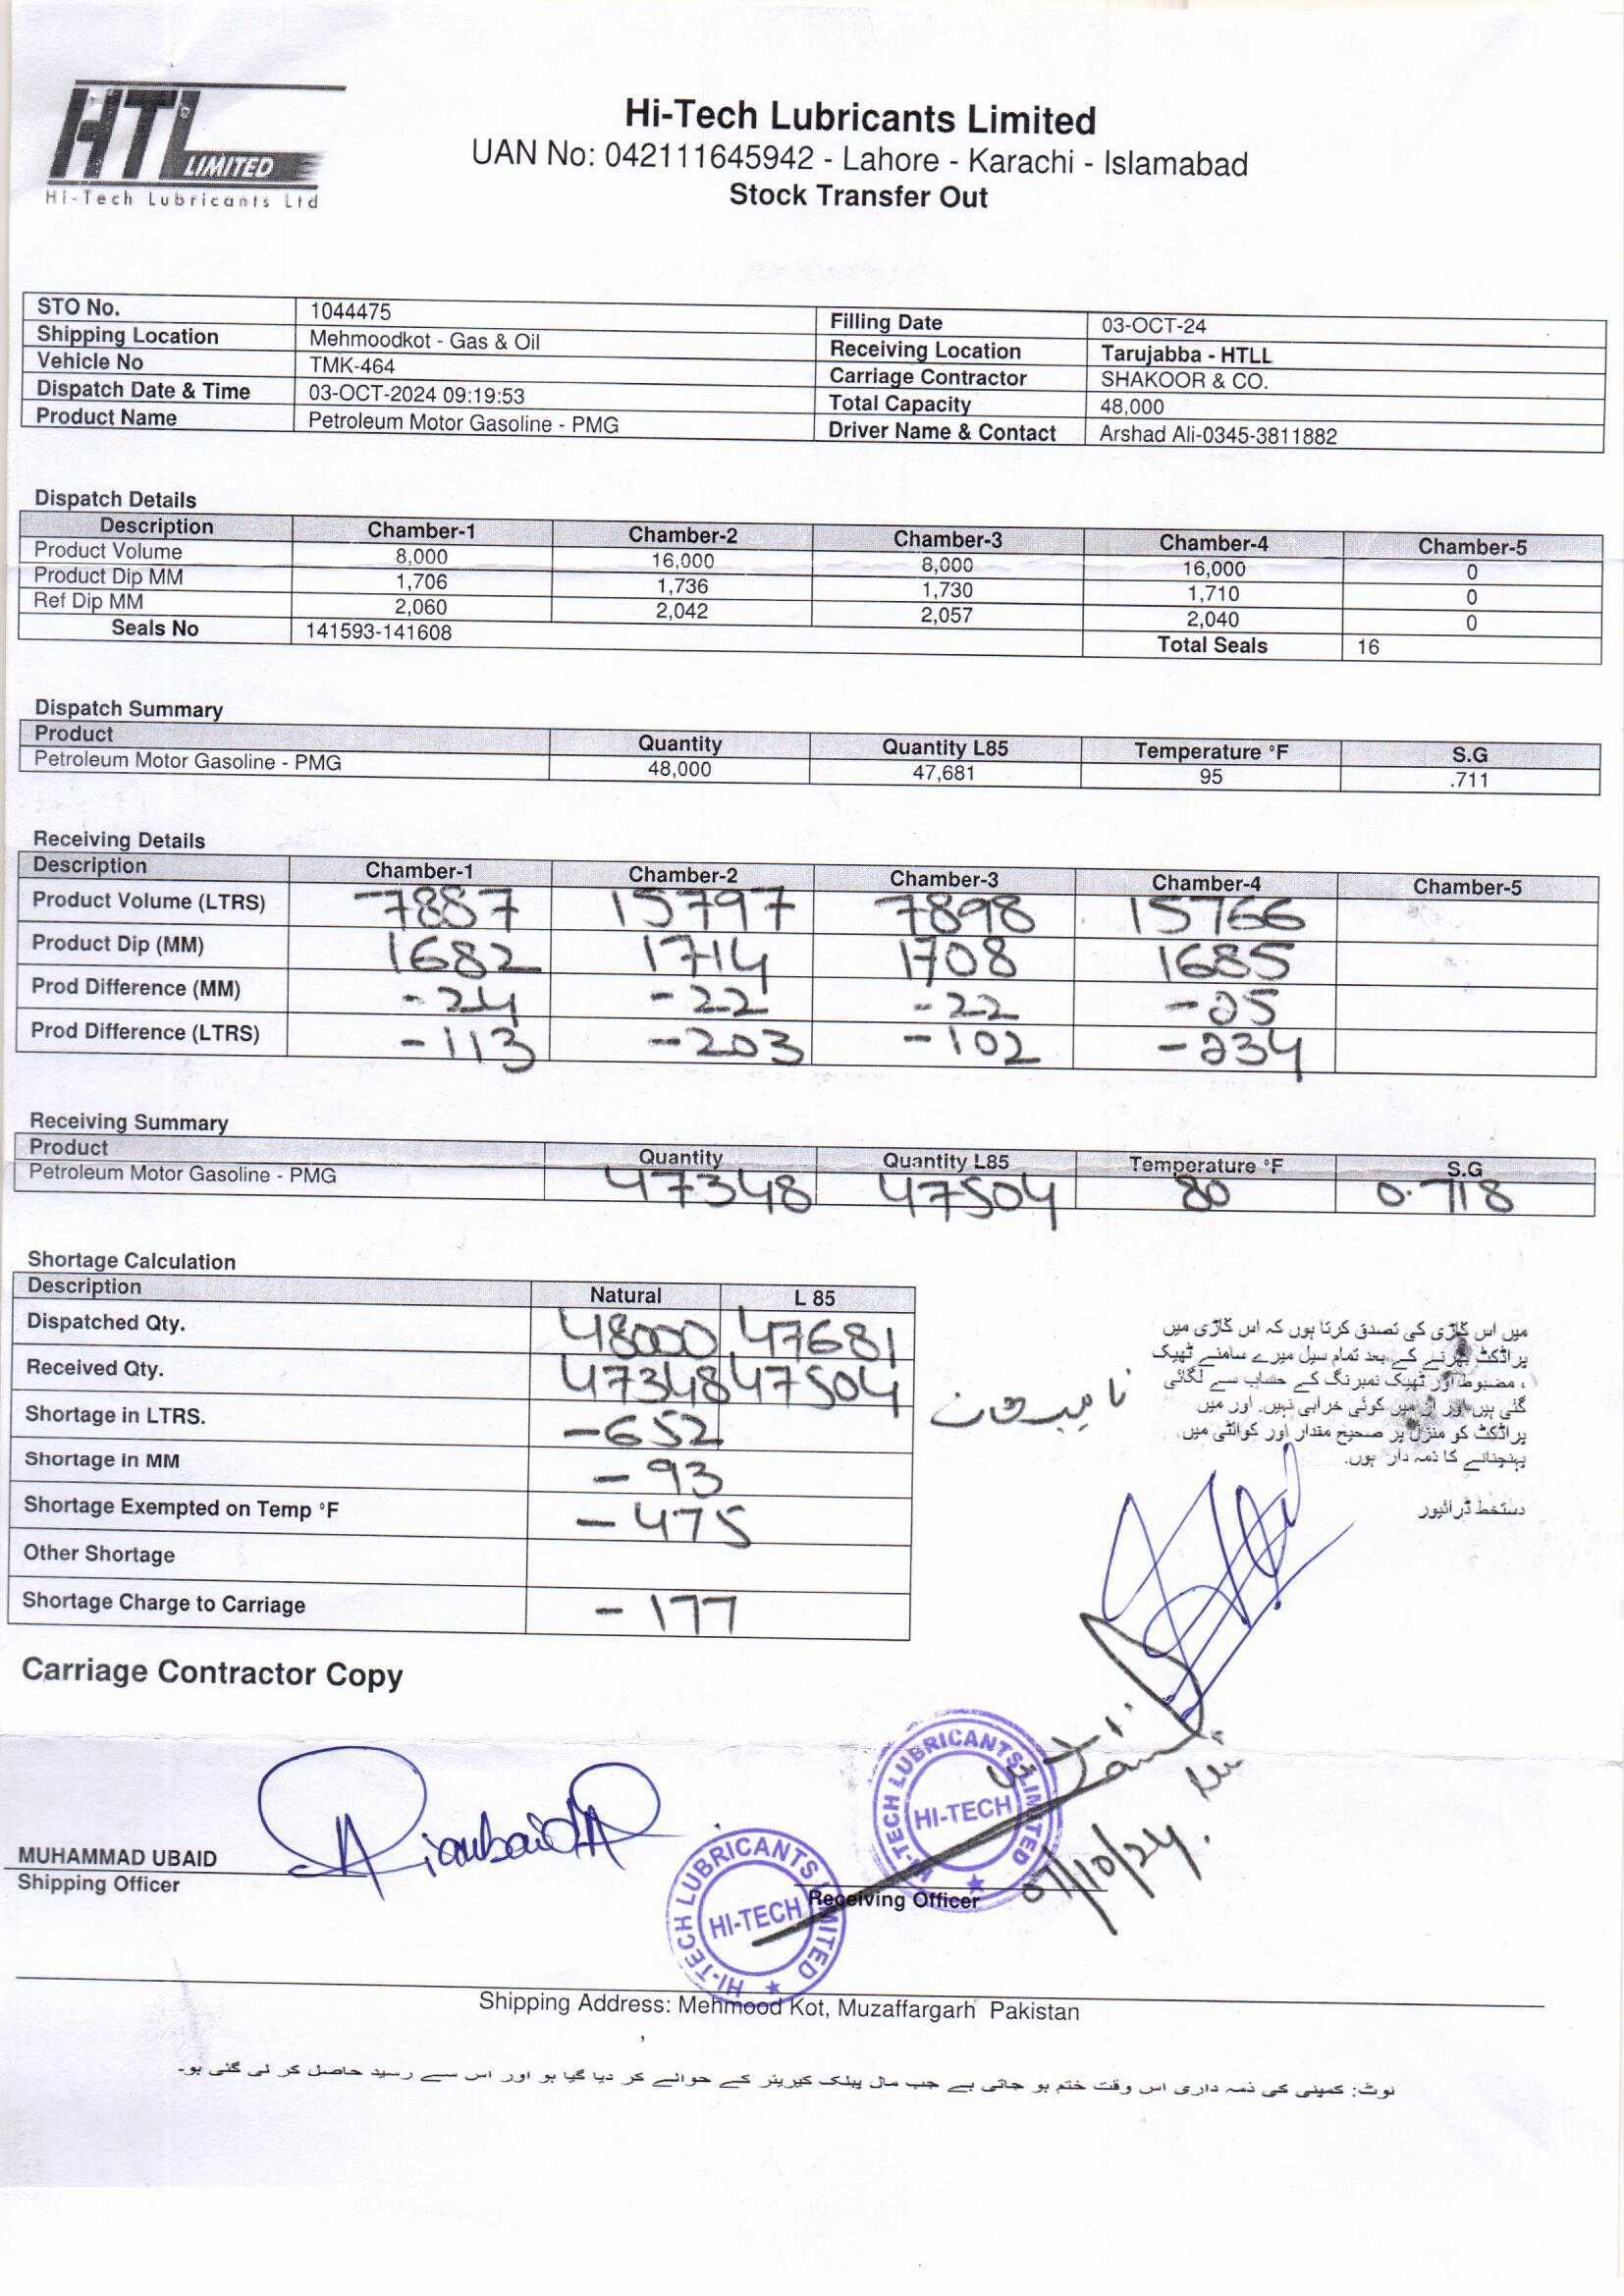 HTL LIMITED
Hi-Tech Lubricants Ltd
Hi-Tech Lubricants Limited
UAN No: 042111645942 - Lahore - Karachi - Islamabad
Stock Transfer Out
STO No. 1044475 Filling Date 03-OCT-24
Shipping Location Mehmoodkot - Gas & Oil Receiving Location Tarujabba - HTLL
Vehicle No TMK-464 Carriage Contractor SHAKOOR & CO.
Dispatch Date & Time 03-OCT-2024 09:19:53 Total Capacity 48,000
Product Name Petroleum Motor Gasoline - PMG Driver Name & Contact Arshad Ali-0345-3811882
Dispatch Details
Description Chamber-1 Chamber-2 Chamber-3 Chamber-4 Chamber-5
Product Volume 8,000 16,000 8,000 16,000 0
Product Dip MM 1,706 1,736 1,730 1,710 0
Ref Dip MM 2,060 2,042 2,057 2,040 0
Seals No 141593-141608 Total Seals 16
Dispatch Summary
Product Quantity Quantity L85 Temperature °F S.G
Petroleum Motor Gasoline - PMG 48,000 47,681 95 .711
Receiving Details
Description Chamber-1 Chamber-2 Chamber-3 Chamber-4 Chamber-5
Product Volume (LTRS) 7887 15797 7898 15766
Product Dip (MM) 1682 1714 1708 1685
Prod Difference (MM) -24 -22 -22 -25
Prod Difference (LTRS) -113 -203 -102 -234
Receiving Summary
Product Quantity Quantity L85 Temperature °F S.G
Petroleum Motor Gasoline - PMG 47348 47504 80 0.718
Shortage Calculation
Description Natural L 85
Dispatched Qty. 48000 47681
Received Qty. 47348 47504
Shortage in LTRS. -652
Shortage in MM -93
Shortage Exempted on Temp °F -475
Other Shortage
Shortage Charge to Carriage -177
میں اس گاڑی کی تصدق کرتا ہوں کہ اس گاڑی میں
پراڈکٹ بھرنے کے بعد تمام سیل میرے سامنے ٹھیک
، مضبوط اور ٹھیک نمبرنگ کے حساب سے لگائی
گئی ہیں اور ان میں کوئی خرابی نہیں۔ اور میں
پراڈکٹ کو منزل پر صحیح مقدار اور کوالٹی میں
پہنچنانے کا ذمہ دار ہوں۔
دستخط ڈرائیور
Carriage Contractor Copy
MUHAMMAD UBAID
Shipping Officer
HI-TECH LUBRICANTS LIMITED
HI-TECH
HI-TECH LUBRICANTS LIMITED
HI-TECH
Receiving Officer
07/10/24.
Shipping Address: Mehmood Kot, Muzaffargarh Pakistan
نوٹ: کمپنی کی ذمہ داری اس وقت ختم ہو جاتی ہے جب مال پبلک کیریئر کے حوالے کر دیا گیا ہو اور اس سے رسید حاصل کر لی گئی ہو۔